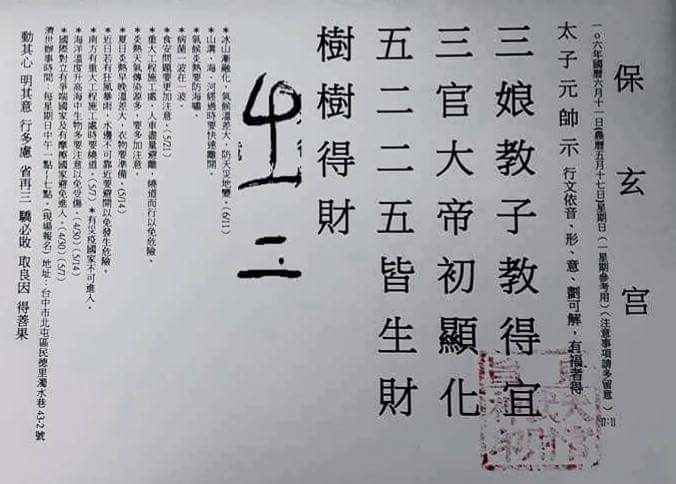 保玄宮
一o六年國曆六月十一日(農曆五月十七日)星期日(一星期參考用)(注意事項請多留意)
太子元帥示 行文依音、形、意、劃可解,有福者得
三娘教子教得宜
三官大帝初顯化
五二二五皆生財
樹樹得財
二
*冰山漸融化,氣候溫差大,防天災地變。(6/11)
*山溝、海、河經過時要快速離開。
*氣候炎熱要防海嘯。
*病菌一波在一波。
*食安問題要更加注意。(5/21)
*重大工程施工處,人車盡量避離,繞道而行以免危險。
*炎熱天氣傳染源多,要多加注意。
*夏日炎熱早晚溫差大,衣物要準備。(5/14)
*近日若有狂風暴雨,水邊不可靠近要避開以免發生危險。
*南方有重大工程施工處時要繞道。(5/7) *有災疫國家不可進入。
*海洋溫度升高海中生物多要注意以免受傷。(4/30)(5/14)
*國際對立有爭端國家及有摩擦國家避免進入。(4/30)(5/7)
濟世辦事時間:每星期日中午一點~七點。(現場報名)地址:台中市北屯區民德里濁水巷43-2號
動其心 明其意 行多慮 省再三 驕必敗 取良因 得善果